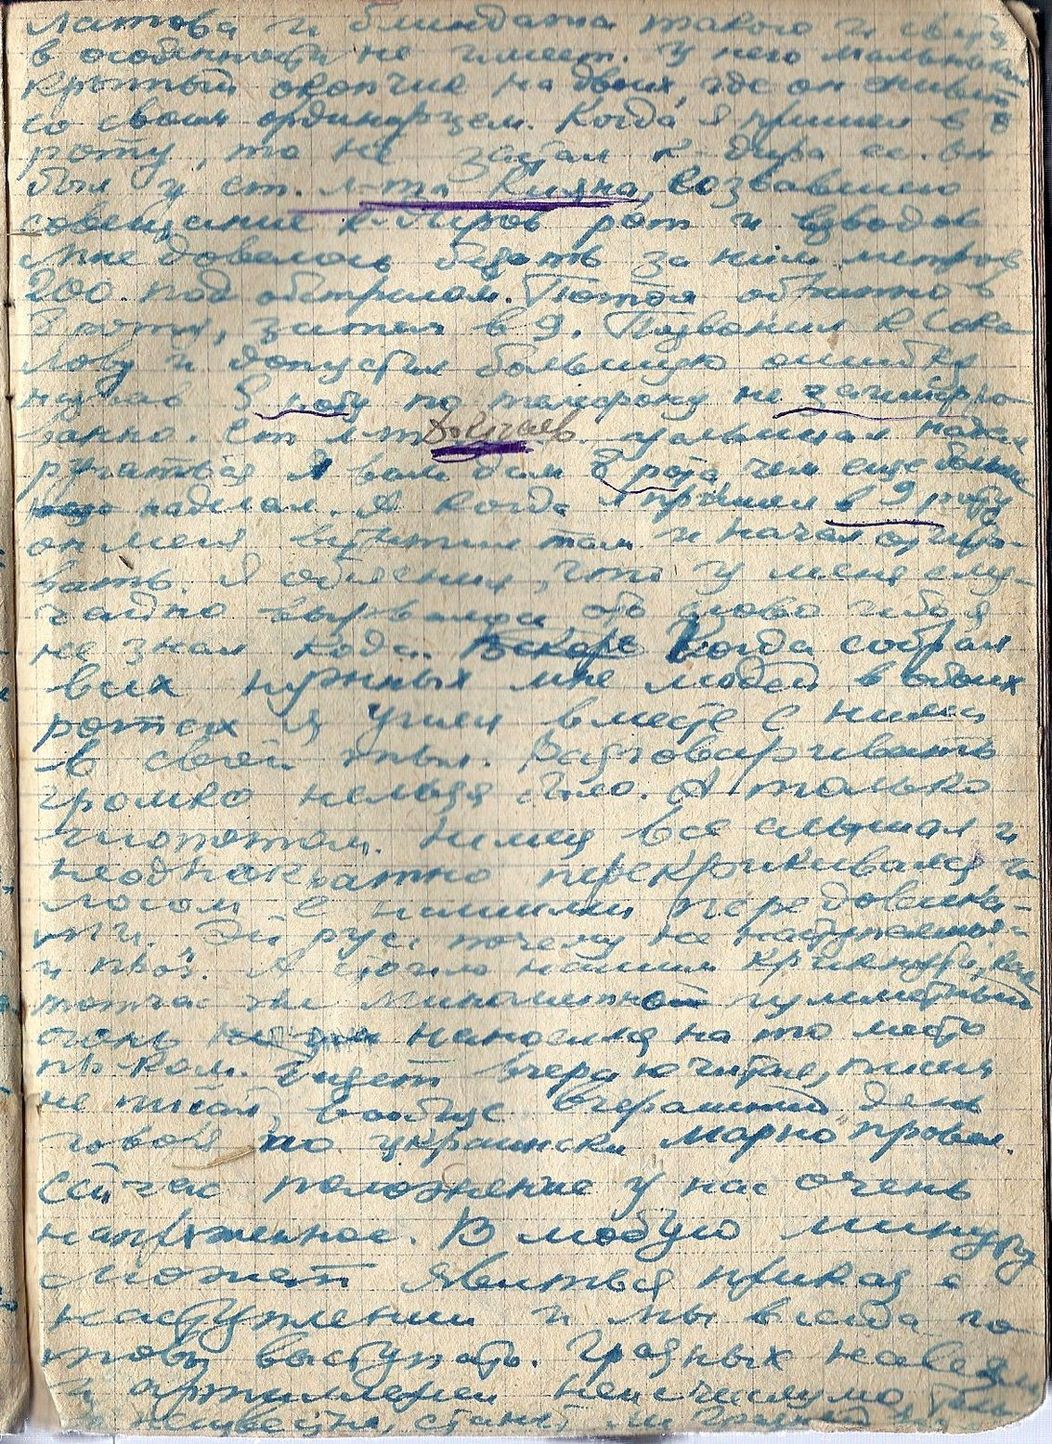 латова и блиндажа такого и
в особенности не имеет. У него маленький
крытый окопчик на двоих, где он живет
со своим ординарцем. Когда я пришел в 8
роту, то не застал к-дира ее. Он
был у ст. л-та Кияна, созвавшего
совещание к-диров рот и взводов
Мне довелось бегать за ним метров
200. под обстрелом. Потом обратно в
8 роту, затем в 9. Позвонил к Соко
лову и допустил большую ошибку
назвав 8 роту по телефону не зашифро
ванно. Ст л-т услышал начал
ругаться Я вам дам 8 рота чем еще больше
наделал. А когда я пришел в 9 роту
он меня встретил там и начал отчиты-
вать. Я объяснил, что у меня слу-
чайно вырвалось это слово ибо я
не знал кода. Вскоре Когда собрал
всех нужных мне людей в обоих
ротах я ушел вместе с ними
в свой тыл. Разговаривать
громко нельзя было. А только
шопотом. Немец все слышал и
неоднократно перекрикивался го
лосом с нашими передовыми
"Эй рус, почему не наступаешь"
и проч. А стоило нашим крикнуть, как
тотчас же минометный пулеметный
огонь наносился на то место
Газет вчера не читал, писем
не писал, вообще вчерашний день
говоря по украински "марно" провел.
Сейчас положение у нас очень
напряженное. В любую минуту
может явиться приказ о
наступлении и мы всегда го
товы выступать. Грозных
и артиллерии неисчислимо,
неизвестно, станет ли